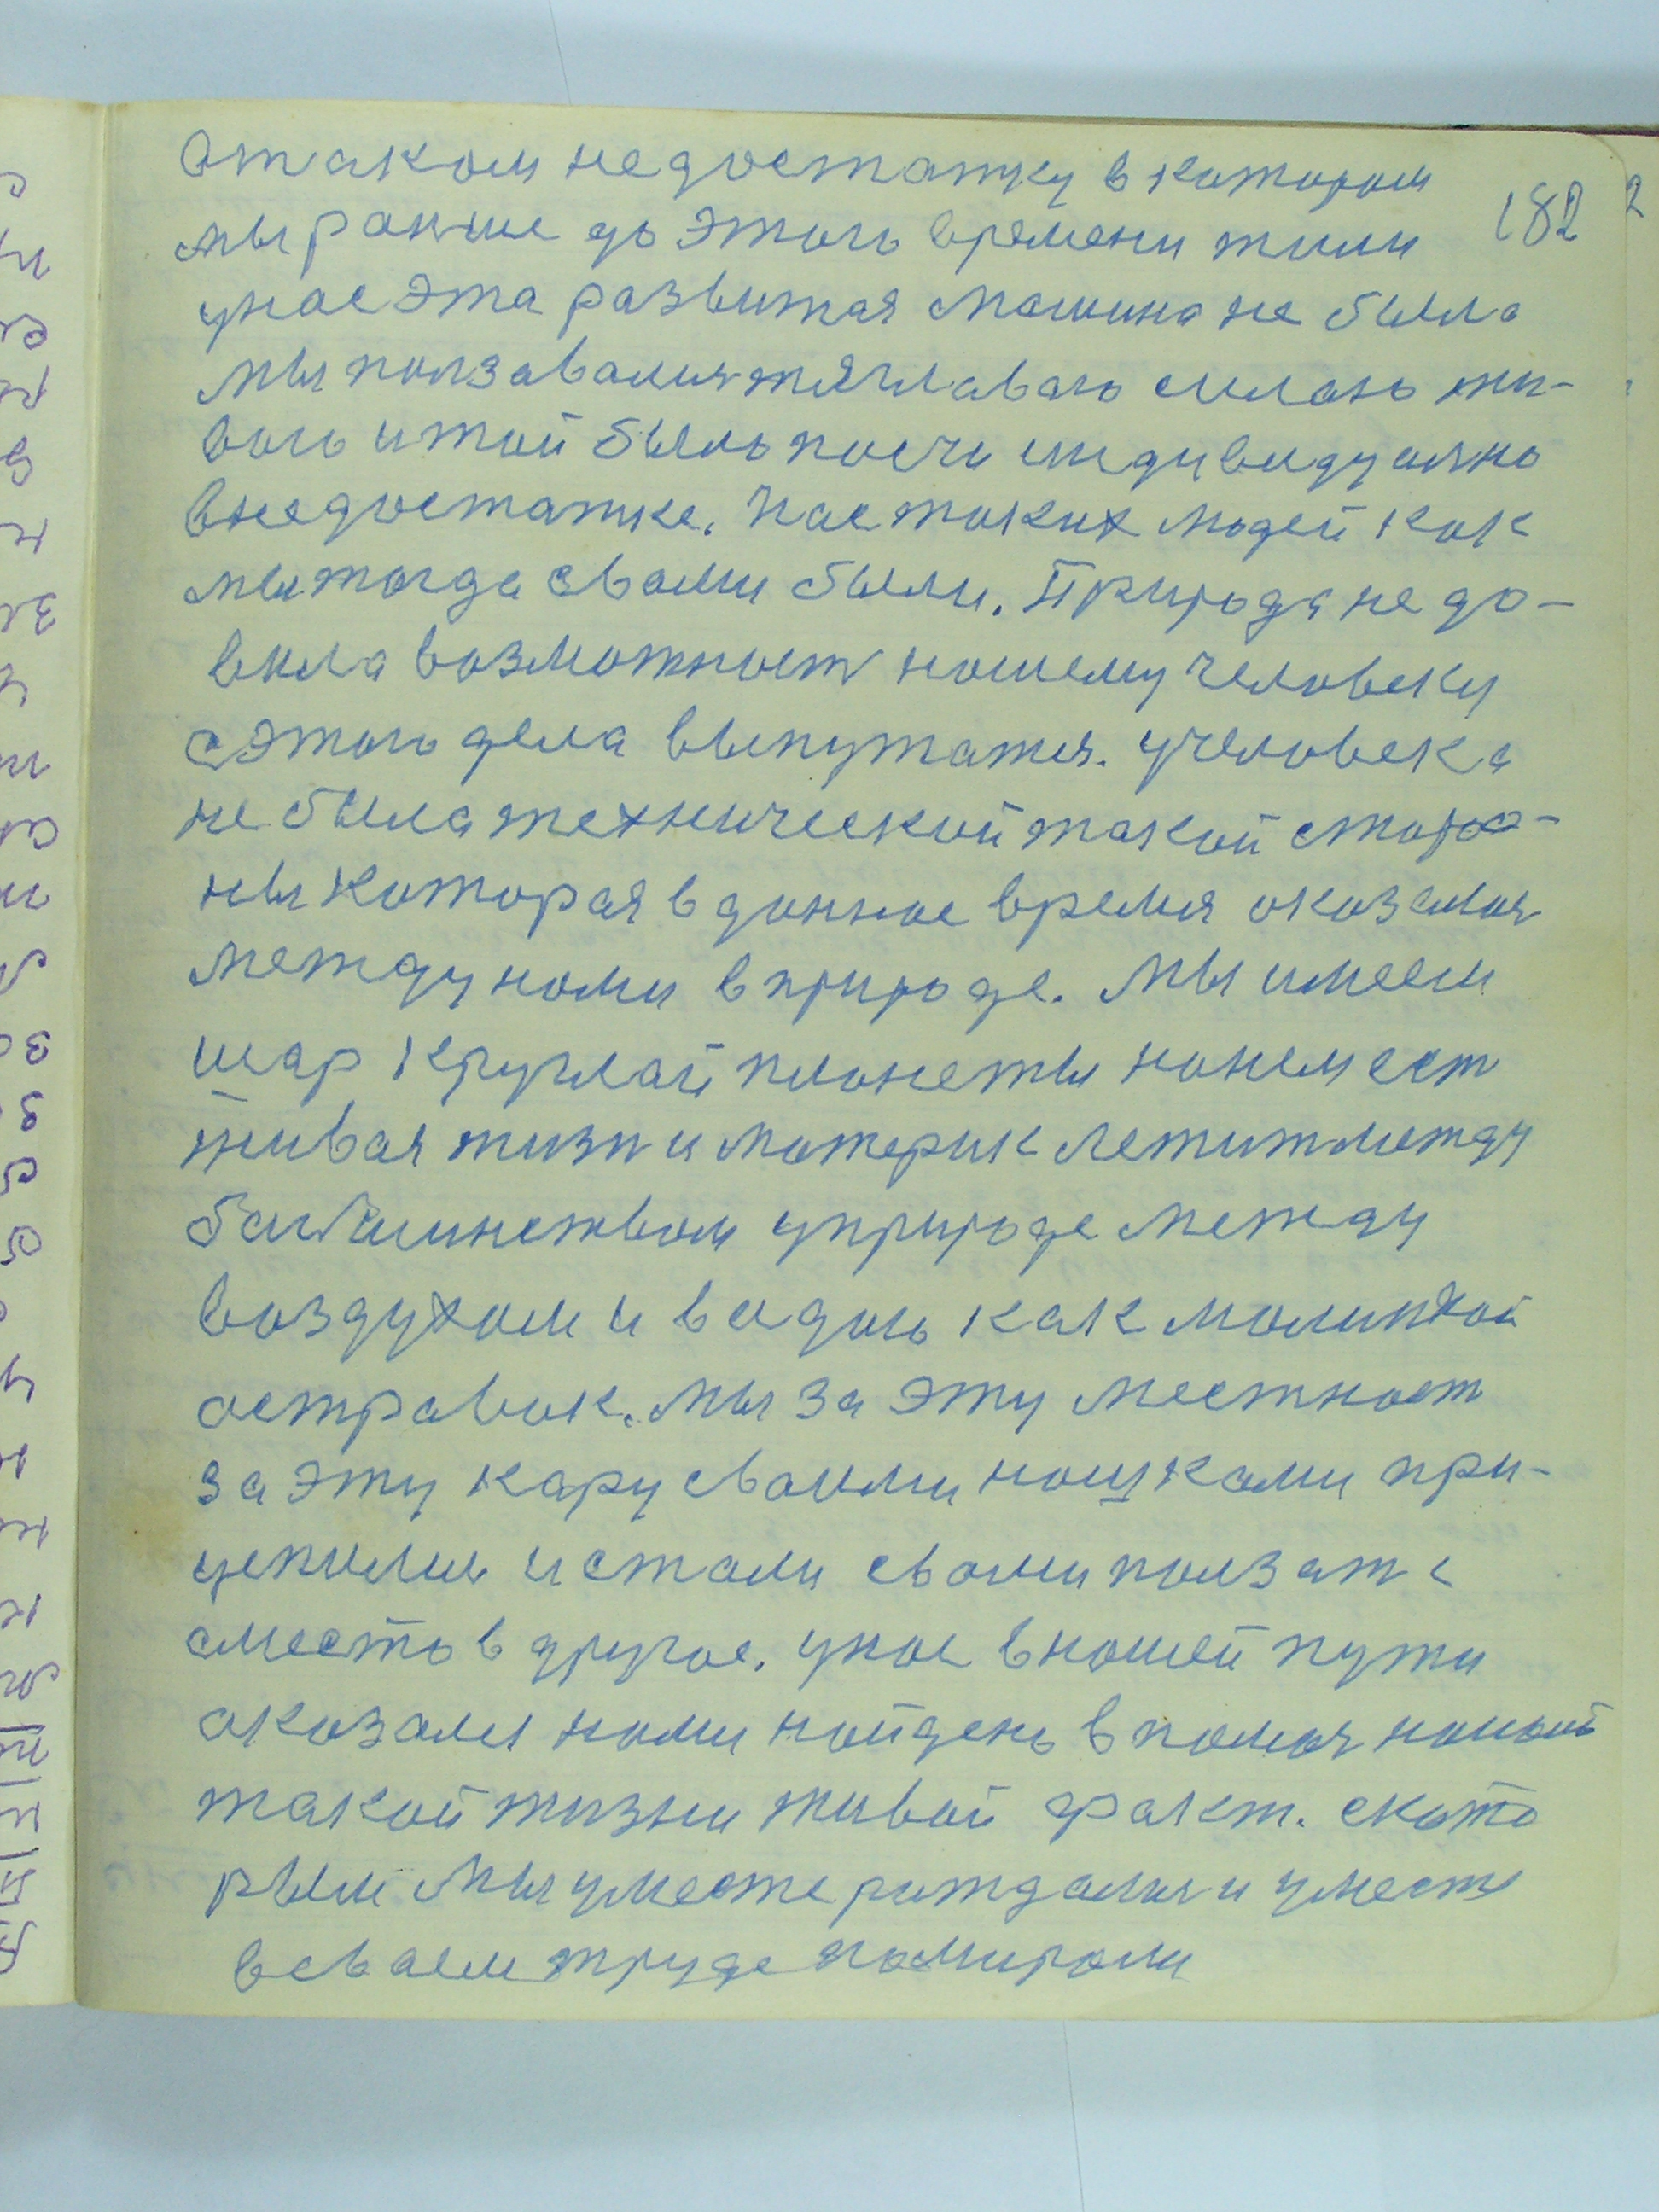 О таком недостатку в котором
182
мы раньше до этого времени жили
унас эта развитая машина не была
мы ползавалися тяглавого силаю жи-
вого и той было почти индивидуално
внедостатке. Нас таких людей как
мы тогда свами были. Природа не до-
вала возможност нашему человеку
с этого дела выпутатся. учеловека
не была технической такой сторо-
ны которая в данное время оказалися
между нами в природе. Мы имеем
шар круглай планеты нанем ест
живая жизн и материк летит между
балшинством уприроде между
воздухом и водою как малинкой
астравок. Мы за эту местност
за эту кару сваими ношками при-
цепилис и стали свами ползат с
месть в другое. унас в нашей пути
оказалися нами найдено
такой жизни живой факт. скато
рым мы умести рождалися и умести
в сваем труде помирали